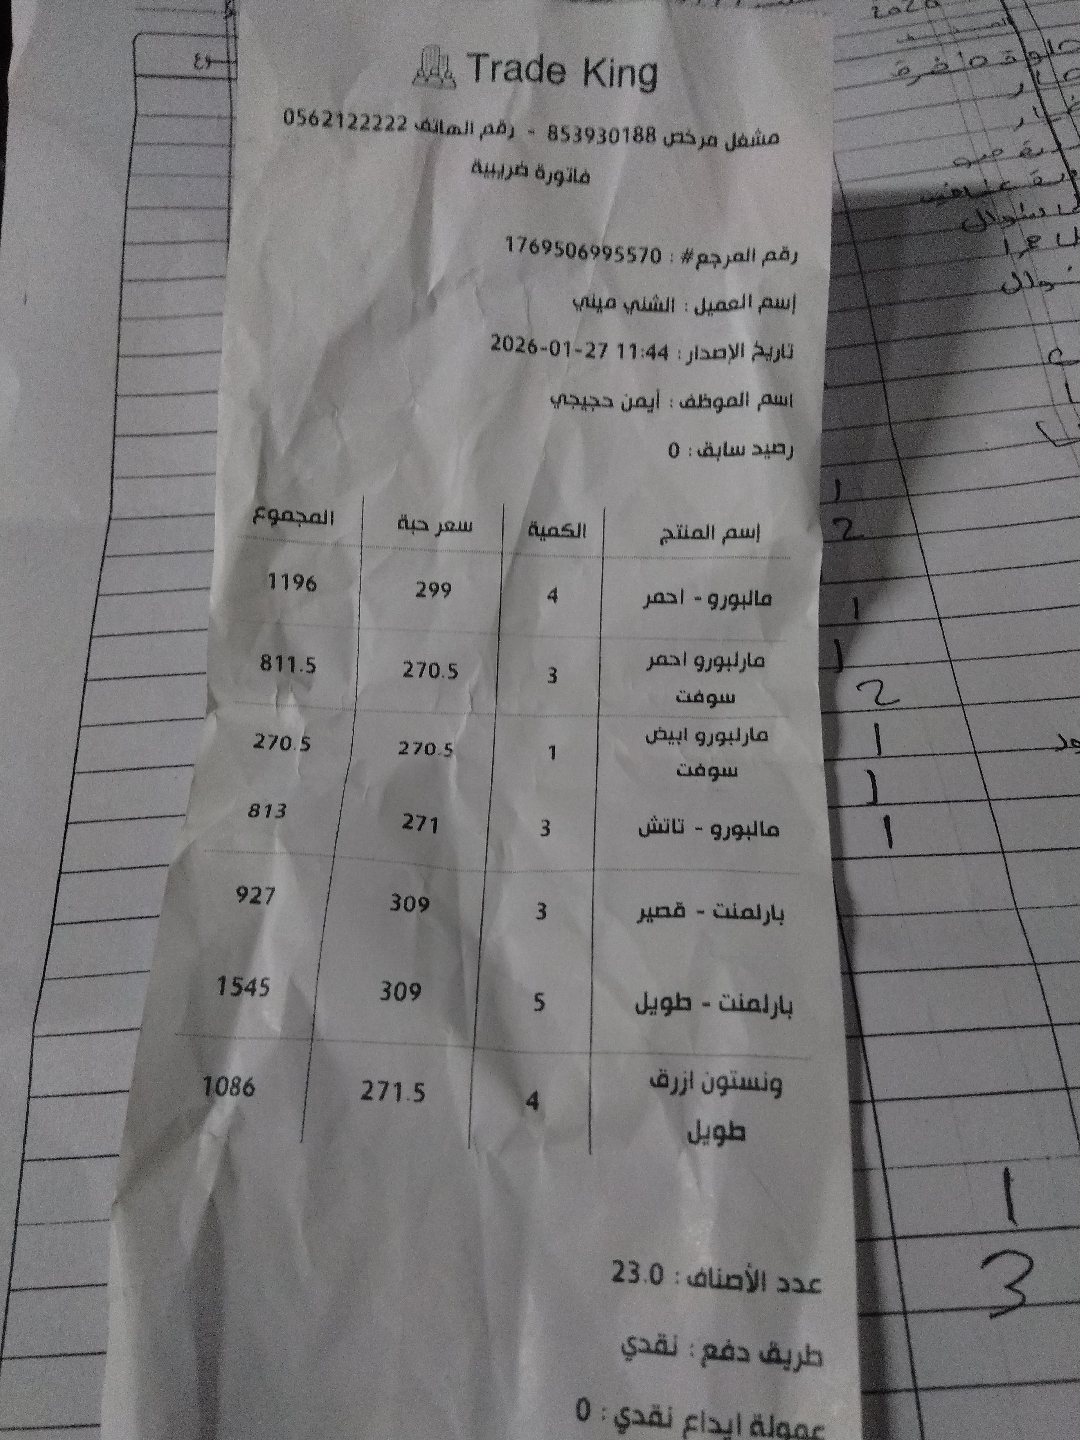 Trade King
مشغل مرخص 853930188 - رقم الهاتف 0562122222
فاتورة ضريبية
رقم المرجع# : 1769506995570
إسم العميل : الشني ميني
تاريخ الإصدار : 2026-01-27 11:44
اسم الموظف : أيمن حجيجي
رصيد سابق : 0
إسم المنتج الكمية سعر حبة المجموع
مالبورو - احمر 4 299 1196
مارلبورو احمر سوفت 3 270.5 811.5
مارلبورو ابيض سوفت 1 270.5 270.5
مالبورو - تاتش 3 271 813
بارلمنت - قصير 3 309 927
بارلمنت - طويل 5 309 1545
ونستون ازرق طويل 4 271.5 1086
عدد الأصناف : 23.0
طريق دفع : نقدي
عمولة ايداع نقدي : 0
1
2
1
1
2
1
1
1
1
3